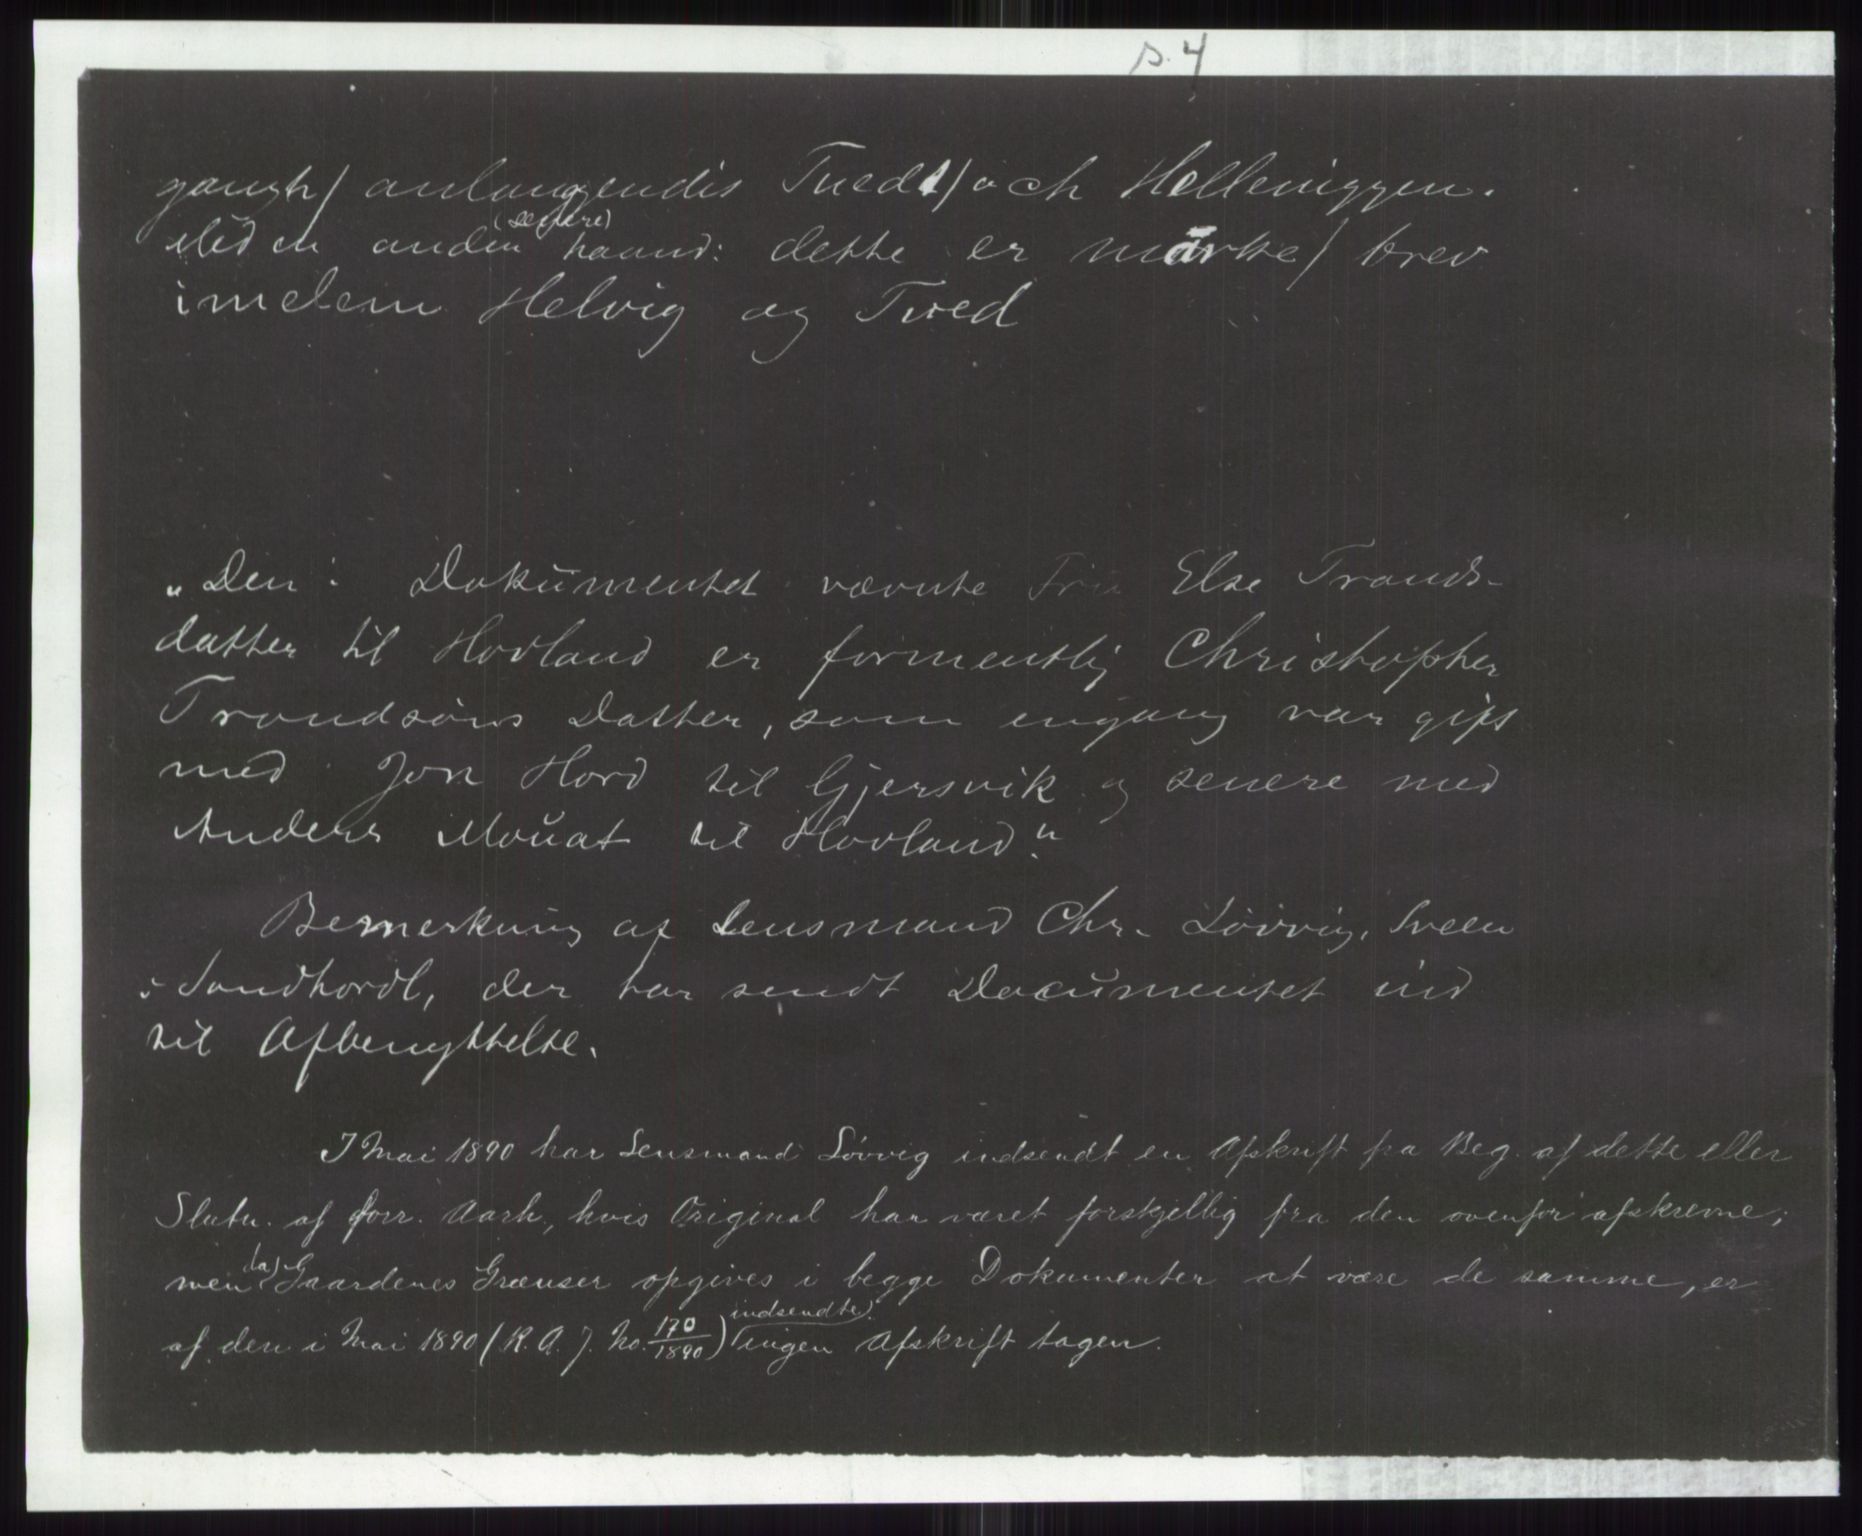 p. 4
gangh / anlanggendis Tuedt / och Hellewiggen.
Med en anden (senere) haand: dette er märke / brev
imelem Helvig og Tved
„Den i Dokumentet nævnte Fru Else Tronds-
datter til Hovland er formentlig Christopher
Trondsöns Datter, som engang var gift
med Jon Hord til Gjersvik og senere med
Anders Mouat til Hovland."
Bemerkning af Lensmand Chr. Lövvig, Sveen
i Söndhordl, der har sendt Documentet ind
til Afbenyttelse.
I Mai 1890 har Lensmand Lövvig indsendt en Afskrift fra Beg. af dette eller
Slutn. af forr. Aarh., hvis Original har været forskjellig fra den ovenfor afskrevne;
men (da) Gaardenes Grænser opgives i begge Dokumenter at være de samme, er
af den i Mai 1890 (R. A. J. No. 170/1890) indsendte ingen Afskrift tagen.